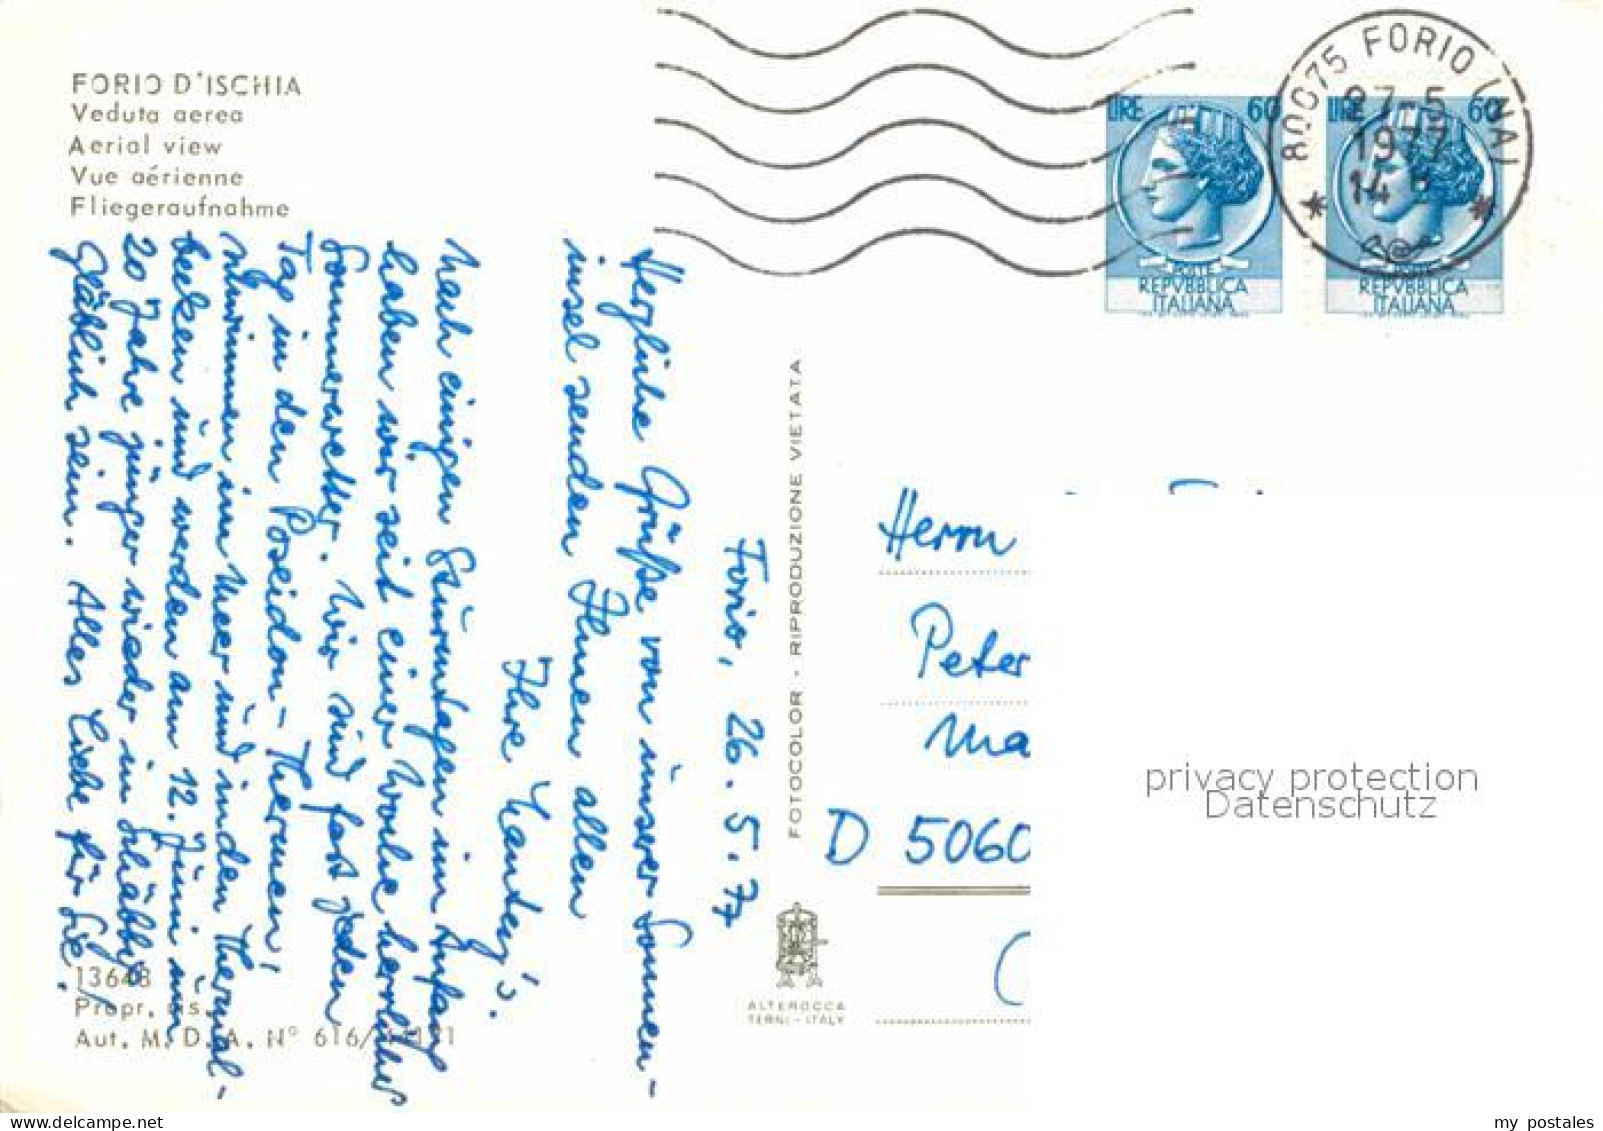 FORIO D'ISCHIA
Veduta aerea
Aerial view
Vue aérienne
Fliegeraufnahme
80075 FORIO (NA)
27-5
1977
14
LIRE 60
POSTE
REPVBBLICA
ITALIANA
LIRE 60
POSTE
REPVBBLICA
ITALIANA
Forio, 26.5.77
Herzliche Grüße von unserer Sonnen-
insel senden Ihnen allen
Ihre
Nach einigen Sturmtagen im Anfang
haben wir seit einer Woche herrliches
Sommerwetter. Wir sind fast jeden
Tag in den Poseidon-Thermen,
schwimmen im Meer und in den Thermal-
becken und werden am 12. Juni um
20 Jahre jünger wieder in
sein. Alles Liebe für Sie!
FOTOCOLOR - RIPRODUZIONE VIETATA
ALTEROCCA
TERNI - ITALY
Herrn
Peter
Ma
D 5060
privacy protection
Datenschutz
13648
Propr. Ris.
Aut. M. D. A. N° 616/
my postales